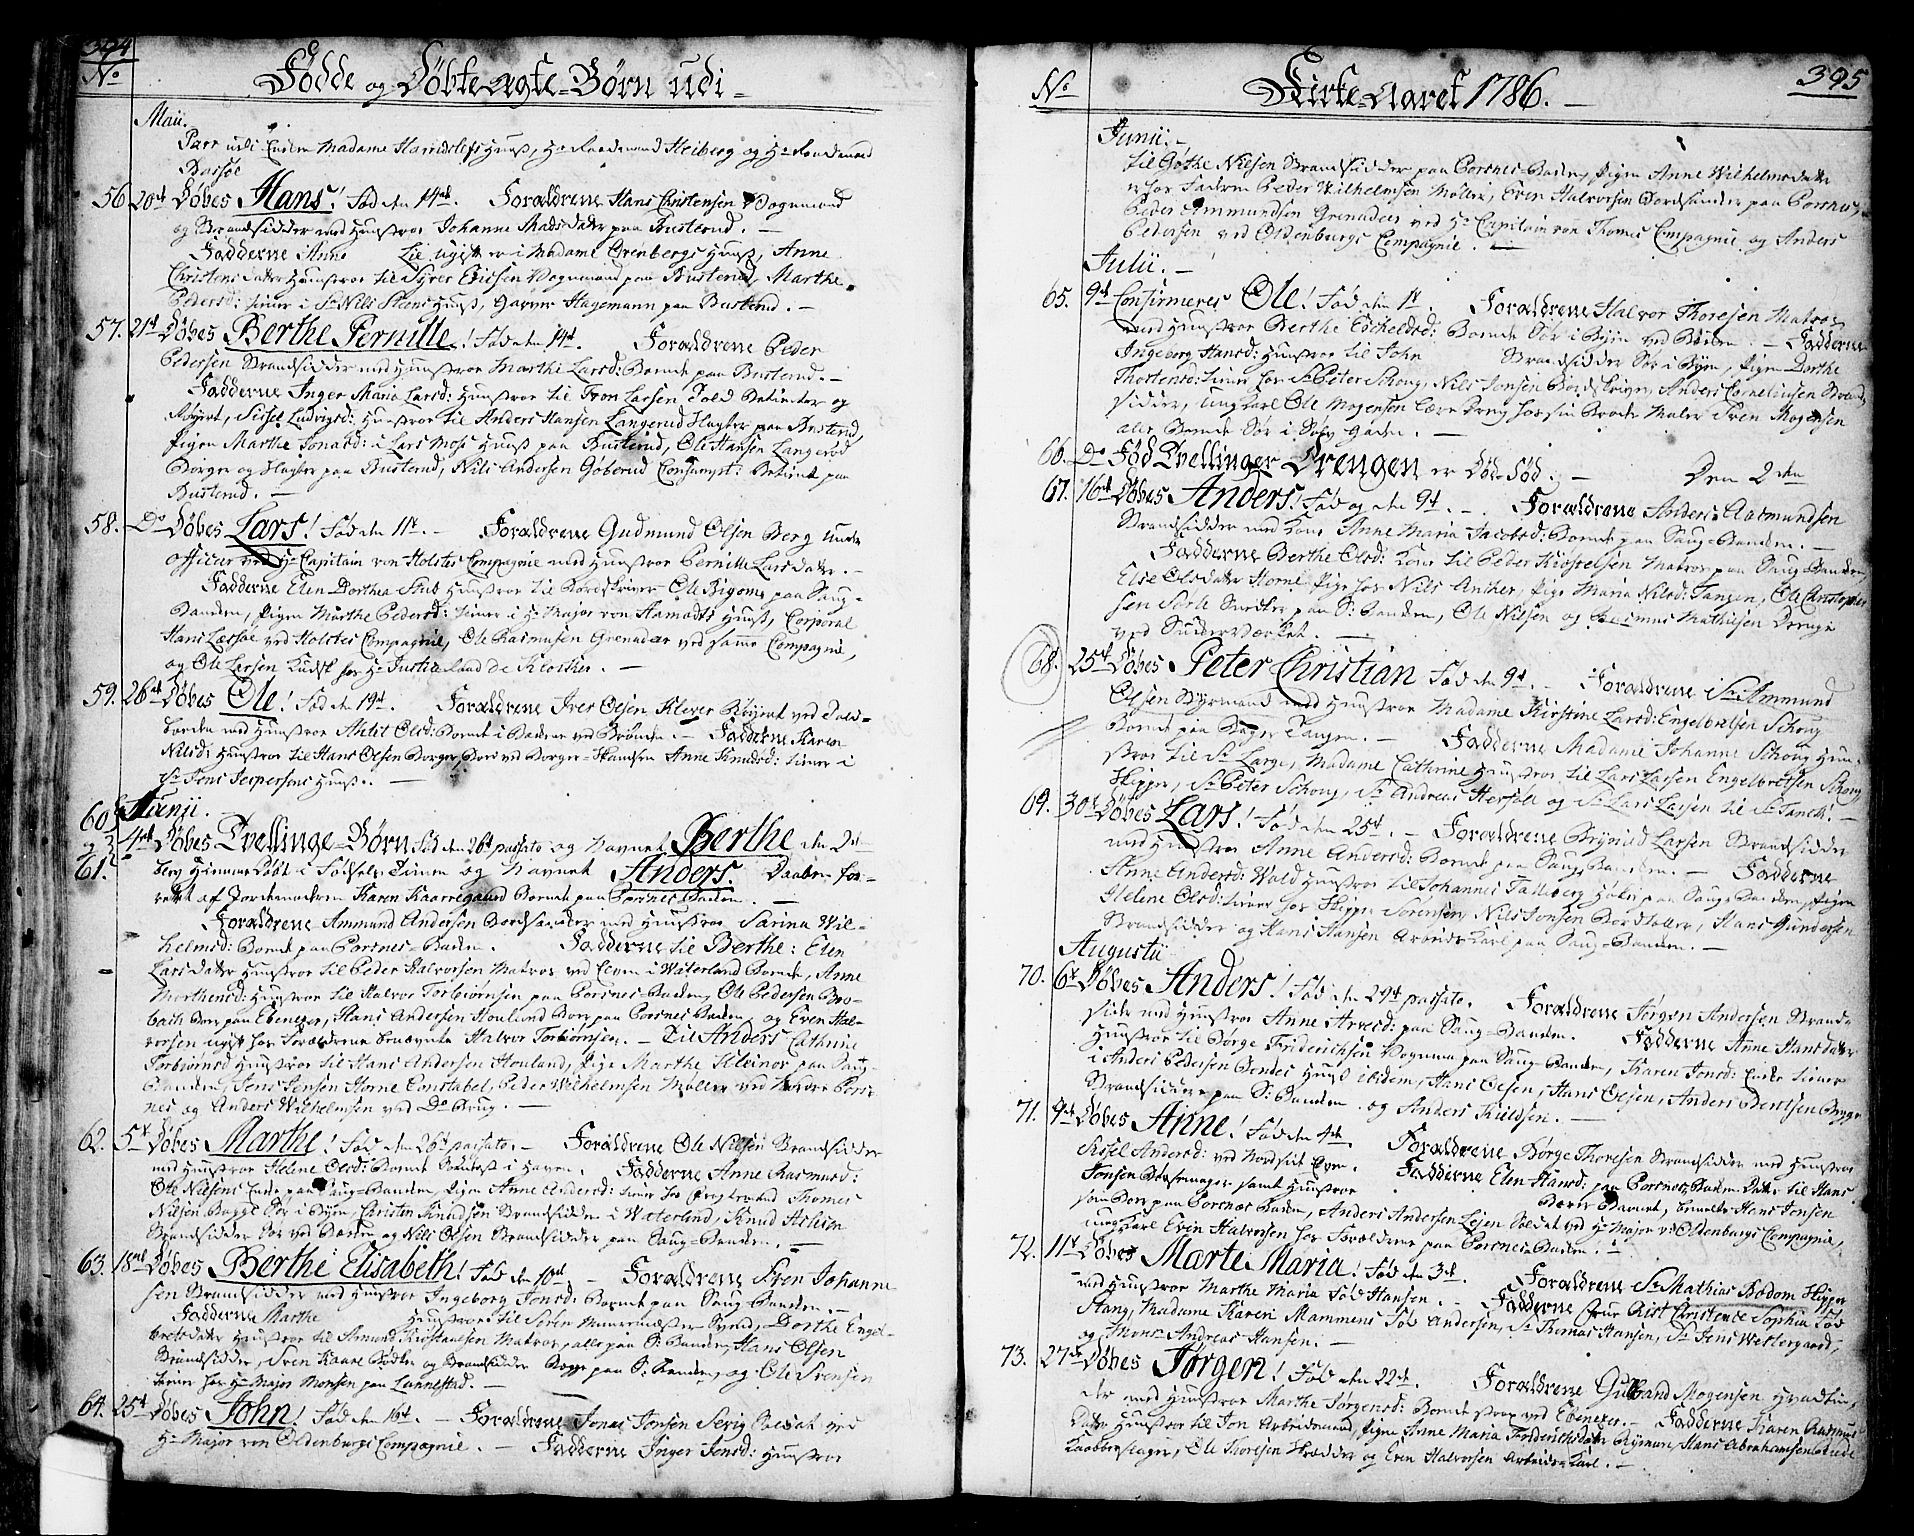 394
No
Fødde og Døbte Ægte-Børn udi -
Maii.
Parr udi Madame Huuß, Hr Heiberg og Hr
Bassøe
56 20de Døbes Hans! Fød den 14de. Forældrene Hans Christensen Vognmand
og Strandsidder med Hustroe Johanne Mads datter paa Busterud. -
Fadderne Anne Lie ugift er i Madame Huuß, Anne
Christens datter Hustroe til Syver Vognmand paa Busterud, Marthe
Pedersd: tiener i Sr Nils Stens Huuß, Garver Hagemann paa Busterud. -
57. 21de Døbes Berthe Pernille! Fød den 14de. Forældrene Peder
Pedersen Strandsidder med Hustroe Marthe Larsd: Boende paa Busterud. -
Fadderne Inger Maria Larsd: Hustroe til Tron Larsen Told Betienter og
Røyert, Sissel Ludvigsd: Hustroe til Anders Hansen Langerud Slagter paa Busterud,
Pigen Marthe Jonasd: i Lars Moss Huuß paa Busterud, Ole Hansen Langerød
Borger og Slagter paa Busterud, Nils Andersen Goberud Consumpt: Betient paa
Busterud. -
58. Do Døbes Lars! Fød den 11te. - Forældrene Gudmund Olsen Berg Under
officeer ved Hr Capitain von Holstes Compagnie med Hustroe Pernille Lars datter. -
Fadderne Elen Dorthea Stub Hustroe til Bordskriver Ole Bigome paa Saug-
Banden, Pigen Marthe Pedersd: tiener i Hr Major von Huuß, Corporal
Hans Lassøe ved Holstes Compagnie, Ole Rasmusen Grenadeer ved samme Compagnie,
og Ole Larsen Kudsk hos Hr Justiceraad de Klocker. -
59. 26de Døbes Ole! Fød den 19de. Forældrene Iver Olsen Klever Røyert ved Told-
boeden med Hustroe Olsd: Boende i Banden ved Brønden. - Fadderne Karen
Nilsd: Hustroe til Hans Olsen Borger, Boer ved Borger-Skandsen Anne Knudsd: tiener i
Sr Jens Jespersens Huuß. -
Junii.
60
og
61. 4de Døbes Tvellinge-Børn Fød den 26de passato og Navnet Berthe den De-
bley Hiemme Døbt i Fødsels Timen og Navnet Anders. Daaben for-
rettet af Jordemoderen Karen Kaarregaard Boende paa Porsnes Banden. -
Forældrene Ammund Andersen Bordsander med Hustroe Sarina Wil-
helmsd: Boende paa Porsnes Banden. Fadderne til Berthe: Elen
Lars datter Hustroe til Peder Halvorsen Matros ved Elven i Waterland Boende, Anne
Morthensd: Hustroe til Halvor Torbiørnsen paa Porsnes-Banden, Ole Pedersen Bro-
bach Boer paa Ebenezer, Hans Andersen Houlund Boer paa Porsnes Banden, og Even Hal-
vorsen ugift hos Forældrene benævnte Halvor Torbiørnsen. - Til Anders Cathrine
Torbiørnsd Hustroe til Hans Andersen Houland, Pige Marthe Kleinov paa Saug-
Banden, Jens Jensen Horne Constabel, Peder Wilhelmsen Møller ved Nedre Pors-
nes og Anders Wilhelmsen ved Do Brug. -
62. 5te Døbes Marthe! Fød den 26de passato. - Forældrene Ole Nilsen Strandsidder
med Hustroe Helene Olsd: Boende i Haven. Fadderne Anne Rasmusd:
Ole Nilsens Enke paa Saug-Banden, Pigen Anne Andersd: tiener hos Thomes
Nilsen Bagge Sør i Byen, Christen Knudsen Strandsidder i Waterland, Knud Achim
Strandsidder Sør ved Banden og Nils Olsen Strandsidder paa Saug-Banden. -
63. 18de Døbes Berthe Elisabeth! Fød den 10de. - Forældrene Sven Johanne
sen Strandsidder med Hustroe Ingeborg Jonsd: Boende paa Saug Banden. -
Fadderne Marthe Hustroe til Søren Muurmæster Svend, Dorthe Engel-
brets datter Hustroe til Amund Kirstensen Matros, alle paa S: Banden, Hans Olsen
Strandsidder, Sven Kaare Bødker og Strandsidder Begge paa S: Banden, og Ole Svensen
tiener hos Hr Major Monsen paa Lannestad. -
64. 25de Døbes John! Fød den 16de. - Forældrene Jonas Jonsen Serig Soldat ved
Hr Major von Oldenburgs Compagnie. - Fadderne Inger Jonsd: Hustroe
No
Kirke-Aaret 1786. -
395
Junii. -
til Gøthe Nilsen Strandsidder paa Porsnes-Banden, Pigen Anne Wilhelmsdatter
er hos Faderen Peder Wilhelmsen Møller, Even Halvorsen Bordsander paa Porsnes,
Peder Ammundsen Grenadeer ved Hr Capitain von Thomes Compagnie og Anders
Pedersen ved Oldenburgs Compagnie. -
Julii. -
65. 9de Confirmeres Ole! Fød den 1te. Forældrene Halvor Thoresen Matros
med Hustroe Berthe Eschelsd: Boende Sør i Byen ved Børsen. - Fadderne
Ingeborg Hansd: Hustroe til John Strandsidder Sør i Byen, Pigen Dorthe
Thostensd: tiener hos Sr Peter Schong, Nils Jensen Bordskriver, Anders Cornelinsen Strand
sidder, Ung Karl Ole Mogensen Lære Dreng hos sin Broder Maler Sven Mogensen
alle Boende Sør i Søby Gaden. -
66. Do Fød Tvellinger Drengen er Død-Fød; - Den 2den
67. 16de Døbes Anders! Fød og den 9de. -. Forældrene Anders Aasmundsen
Strandsidder med Kone Anne Maria Jacobsd: Boende paa Saug-Banden. -
Fadderne Berthe Olsd: Kone til Peder Kiostelsen Matros paa Saug-Banden,
Else Olsdatter Horne, Pige hos Nils Ancher, Pige Maria Nilsd: Tangen, Ole Christopher
sen Sørle Snedker paa S: Banden, Ole Nilsen og Rasmus Mathiesen Drenge
ved Sundersværket. -
68. 25de Døbes Peter Christian Fød den 9de. - Forældrene Sr Ammund
Olsen Styrmand med Hustroe Madame Kirstine Larsd: Engelbretsen Schong
Boende paa Bager Tangen. - Fadderne Madame Johanne Schong Huu-
stroe til Sr Large, Madame Cathrine Hustroe til Lars Larsen Engelbretsen Schong
Skipper, Sr Peter Schong, Sr Andreas Hersøle og Sr Lars Larsen til Sr Tanch. -
69. 30te Døbes Lars! Fød den 25de. - Forældrene Brynild Larsen Strandsidder
med Hustroe Anne Andersd: Boende paa Saug Banden. - Fadderne
Anne Andersd: Wold Hustroe til Johannes Tallberg Høker paa Saug-Banden, Pigen
Helene Olsd: tiener hos Skipper Sørensen, Nils Jonsen Bordtæller, Hans Gundersen
Strandsidder og Hans Hansen Arbeids Karl paa Saug-Banden. -
Augustii
70. 6te Døbes Anders! Fød den 29de passato. Forældrene Jørgen Andersen Strand-
sidder med Hustroe Anne Arvesd: paa Saug-Banden. Fadderne Anne Hansdatter
Hustroe til Børge Friderichsen Vognmand paa Saug-Banden, Karen Jonsd: Enke tiener
i Anders Pedersen Bondes Huuß ibidem, Hans Olsen, Hans Olsen, Anders Bentsen Brygge
Strandsiddere paa S: Banden og Anders Kuldsen. -
71. 9de Døbes Anne! Fød den 4de. Forældrene Børge Thoresen Strandsidder med Hustroe
Sissel Andersd: ved Nordsiit Elven. Fadderne Elen Hansd: paa Porsnes Banden Datter til Hans
Jonsen Børsemager samt Hustroe Berte Bavert, bemelte Hans Jensen
som Boer paa Porsnes Banden, Anders Andersen Leien Soldat ved Hr Major v: Oldenburgs Compagnie,
ung Karl Even Halvorsen hos Forældrene paa Porsnes-Banden. -
72. 11te Døbes Marte Maria! Fød den 3de. Forældrene Sr Mathias Bodom Skipper
med Hustroe Marthe Maria Fød Hansen. - Fadderne Frue Christence Sophia Fød
Stang, Madame Karen Mammens Fød Andersen, Sr Thomas Hansen, Sr Jens Wettergaard,
og Monsr Andreas Hansen. -
73. 27de Døbes Jørgen! Fød den 22de. Forældrene Gulbrand Mogensen
med Hustroe Marthe Jørgensd: Boende strax ved Ebenezer. - Fadderne Karen Rasmus
Datter Hustroe til Jon Arbeidsmand, Pigen Anne Maria Friderichsdatter Nyman, Hans Abrahamsen
Kaabberslager, Ole Thoresen Skrædder og Even Halvorsen Arbeids Karl. -